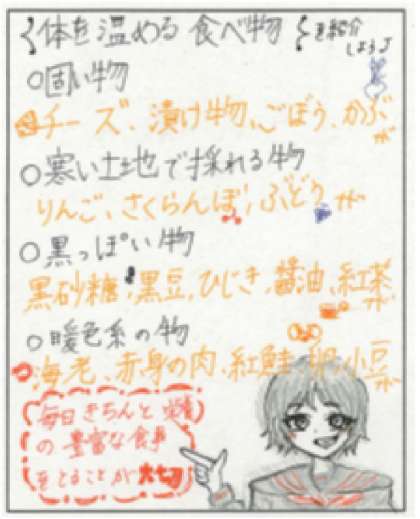 体を温める食べ物を紹介しよう♪
○固い物
チーズ、漬け物、ごぼう、かぶが
○寒い土地で採れる物
りんご、さくらんぼ、ぶどうが
○黒っぽい物
黒砂糖、黒豆、ひじき、醤油、紅茶が
○暖色系の物
海老、赤身の肉、紅鮭、卵、小豆が
毎日きちんと栄養
の豊富な食事
をとることが大切